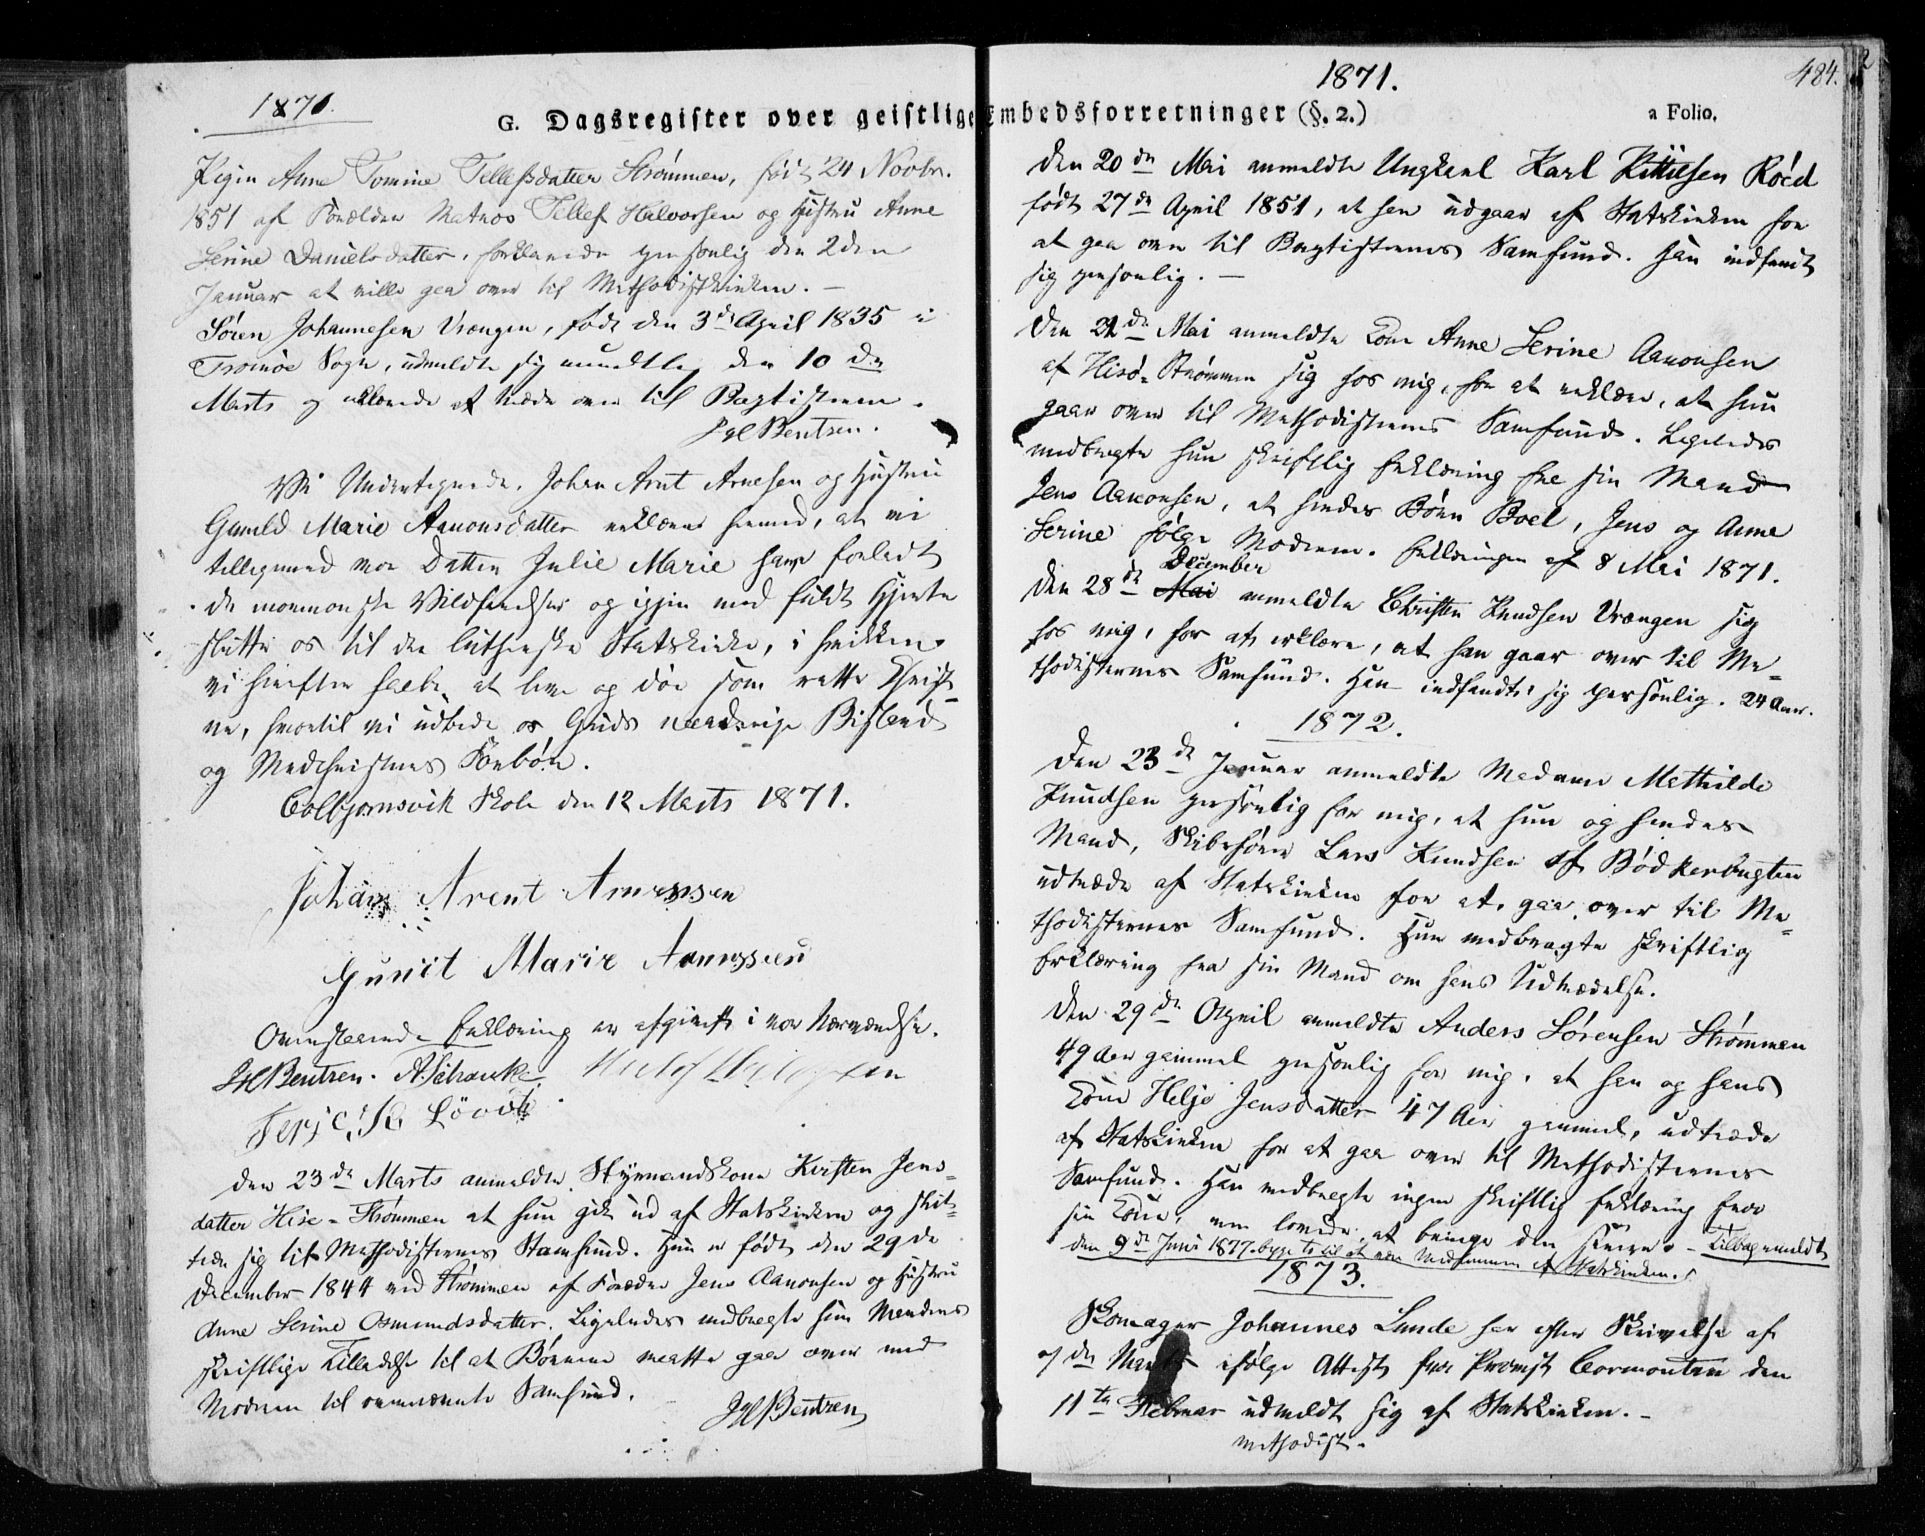 1871.
G. Dagsregister over geistlige
Pigen Anne Tomine Tellefsdatter Strømmen, født 24 Novbr.
1851 af Forældre Matros Tellef Halvorsen og Hustru Anne
Serine Danielsdatter, forklarede personlig den 2den
Januar at ville gaa over til Methodistkirken. –
Søren Johannesen Vrængen, født den 3die April 1835 i
Tromøe Sogn, udmeldte sig mundtlig den 10de
Marts og erklærede at træde over til Baptisterne.
JHBentzen.
Vi Undertegnede, Johan Arnt Arnesen og Hustru
Gunild Marie Aanonsdatter erklære herved, at vi
tilligemed vor Datter Julie Marie have forladt
de mormonske Vildfarelser og igjen med fuldt Hjerte
slutte os til den lutherske Statskirke, i hvilken
vi herefter haabe at leve og døe som rette Christ-
ne, hvortil vi udbede os Guds naaderige Bistand
og Medchristnes Forbøn.
Colbjørnsvik Skole den 12 Marts 1871.
Johan Arent Arnessen
Gunil Marie Aanonssen
Ovenstaaende Erklæring er afgivet i vor Nærværelse.
JHBentzen. A. Schanke
Terje K Løvdt
Den 23de Marts anmeldte Styrmandskone Kirsten Jens-
datter Hisø-Strømmen at hun gik ud af Statskirken og slut-
tede sig til Methodisternes Samfund. Hun er født den 29de
December 1844 ved Strømmen af Forældre Jens Aanonsen og Hustru
Anne Serine Osmundsdatter. Ligeledes medbragte hun Mandens
skriftlige Tilladelse til at Børnene maatte gaa over med
Moderen til ovennævnte Samfund.
JHBentzen
1871.
484.
Embedsforretninger (§. 2.)
a Folio.
Den 20de Mai anmeldte Ungkarl Karl Kittilsen Röed
født 27de April 1851, at han udgaar af Statskirken for
at gaa over til Baptisternes Samfund. Han indfandt
sig personlig. –
Den 21de Mai anmeldte Kone Anne Serine Aanonsen
af Hisö-Strømmen sig hos mig, for at erklære, at hun
gaar over til Methodisternes Samfund. Ligeledes
medbragte hun skriftlig Erklæring fra sin Mand
Jens Aanonsen, at hendes Børn Boel, Jens og Anne
Serine følge Moderen. Erklæringen af 8 Mai 1871.
December
Den 28de Mai anmeldte Christen Knudsen Vrængen sig
hos mig, for at erklære, at han gaar over til Me-
thodisternes Samfund. Han indfandt sig personlig. 24 Aar.
1872.
Den 23de Januar anmeldte Madame Mathilde
Knudsen personlig for mig, at hun og hendes
Mand, Skibsfører Lars Knudsen af Bødkerbugten
udtræde af Statskirken for at gaa over til Me-
thodisternes Samfund. Hun medbragte skriftlig
Erklæring fra sin Mand om hans Udtrædelse.
Den 29de April anmeldte Anders Sørensen Strømmen
49 Aar gammel personlig for mig, at han og hans
Kone Helje Jensdatter 47 Aar gammel, udtræde
af Statskirken for at gaa over til Methodisternes
Samfund. Han medbragte ingen skriftlig Erklæring fra
sin Kone, men lovede at bringe den senere. – Tilbagemeldt
den 9de Juni 1877 begge to til at være Medlemmer af Statskirken.
1873.
Skomager Johannes Lunde har efter Skrivelse af
den Marts ifølge Attest fra Provst Cormontan den
11te Februar udmeldt sig af Statskirken. –
Methodist.